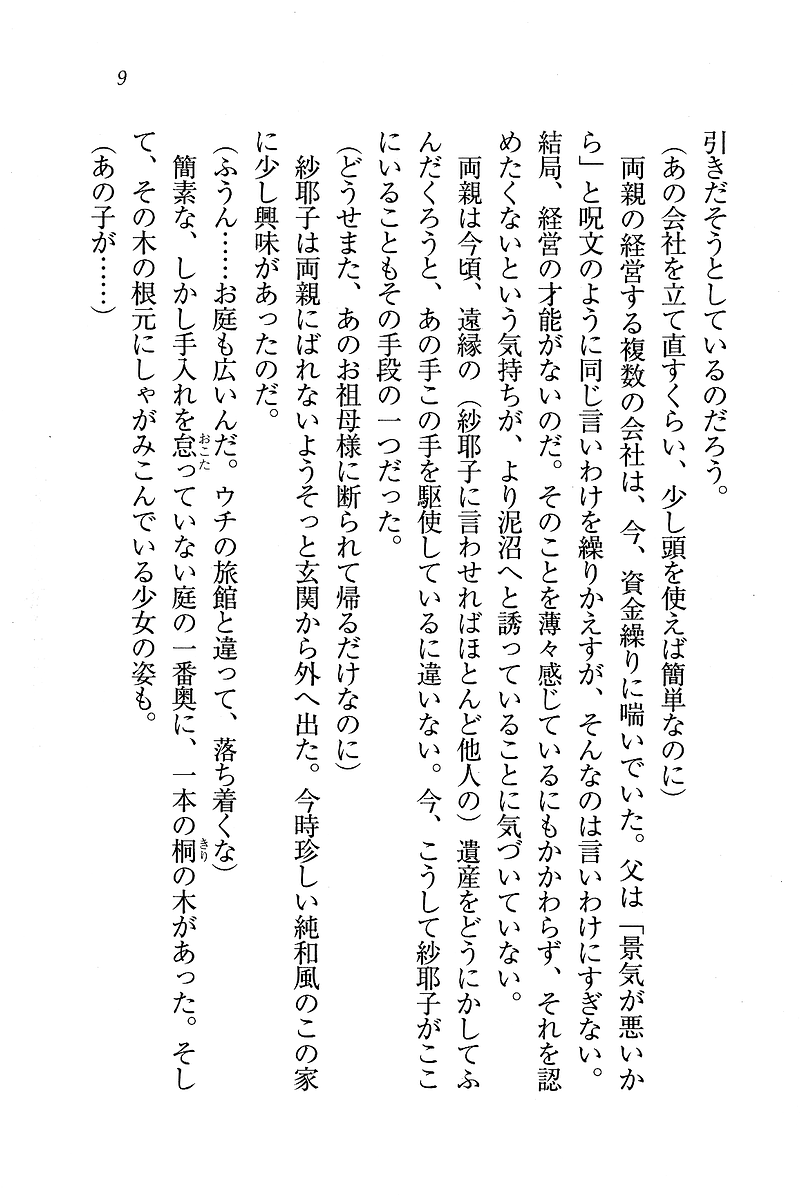 9
引きだそうとしているのだろう。
（あの会社を立て直すくらい、少し頭を使えば簡単なのに）
両親の経営する複数の会社は、今、資金繰りに喘いでいた。父は「景気が悪いか
ら」と呪文のように同じ言いわけを繰りかえすが、そんなのは言いわけにすぎない。
結局、経営の才能がないのだ。そのことを薄々感じているにもかかわらず、それを認
めたくないという気持ちが、より泥沼へと誘っていることに気づいていない。
両親は今頃、遠縁の（紗耶子に言わせればほとんど他人の）遺産をどうにかしてふ
んだくろうと、あの手この手を駆使しているに違いない。今、こうして紗耶子がここ
にいることもその手段の一つだった。
（どうせまた、あのお祖母様に断られて帰るだけなのに）
紗耶子は両親にばれないようそっと玄関から外へ出た。今時珍しい純和風のこの家
に少し興味があったのだ。
（ふうん……お庭も広いんだ。ウチの旅館と違って、落ち着くな）
簡素な、しかし手入れを怠っていない庭の一番奥に、一本の桐の木があった。そし
て、その木の根元にしゃがみこんでいる少女の姿も。
（あの子が……）